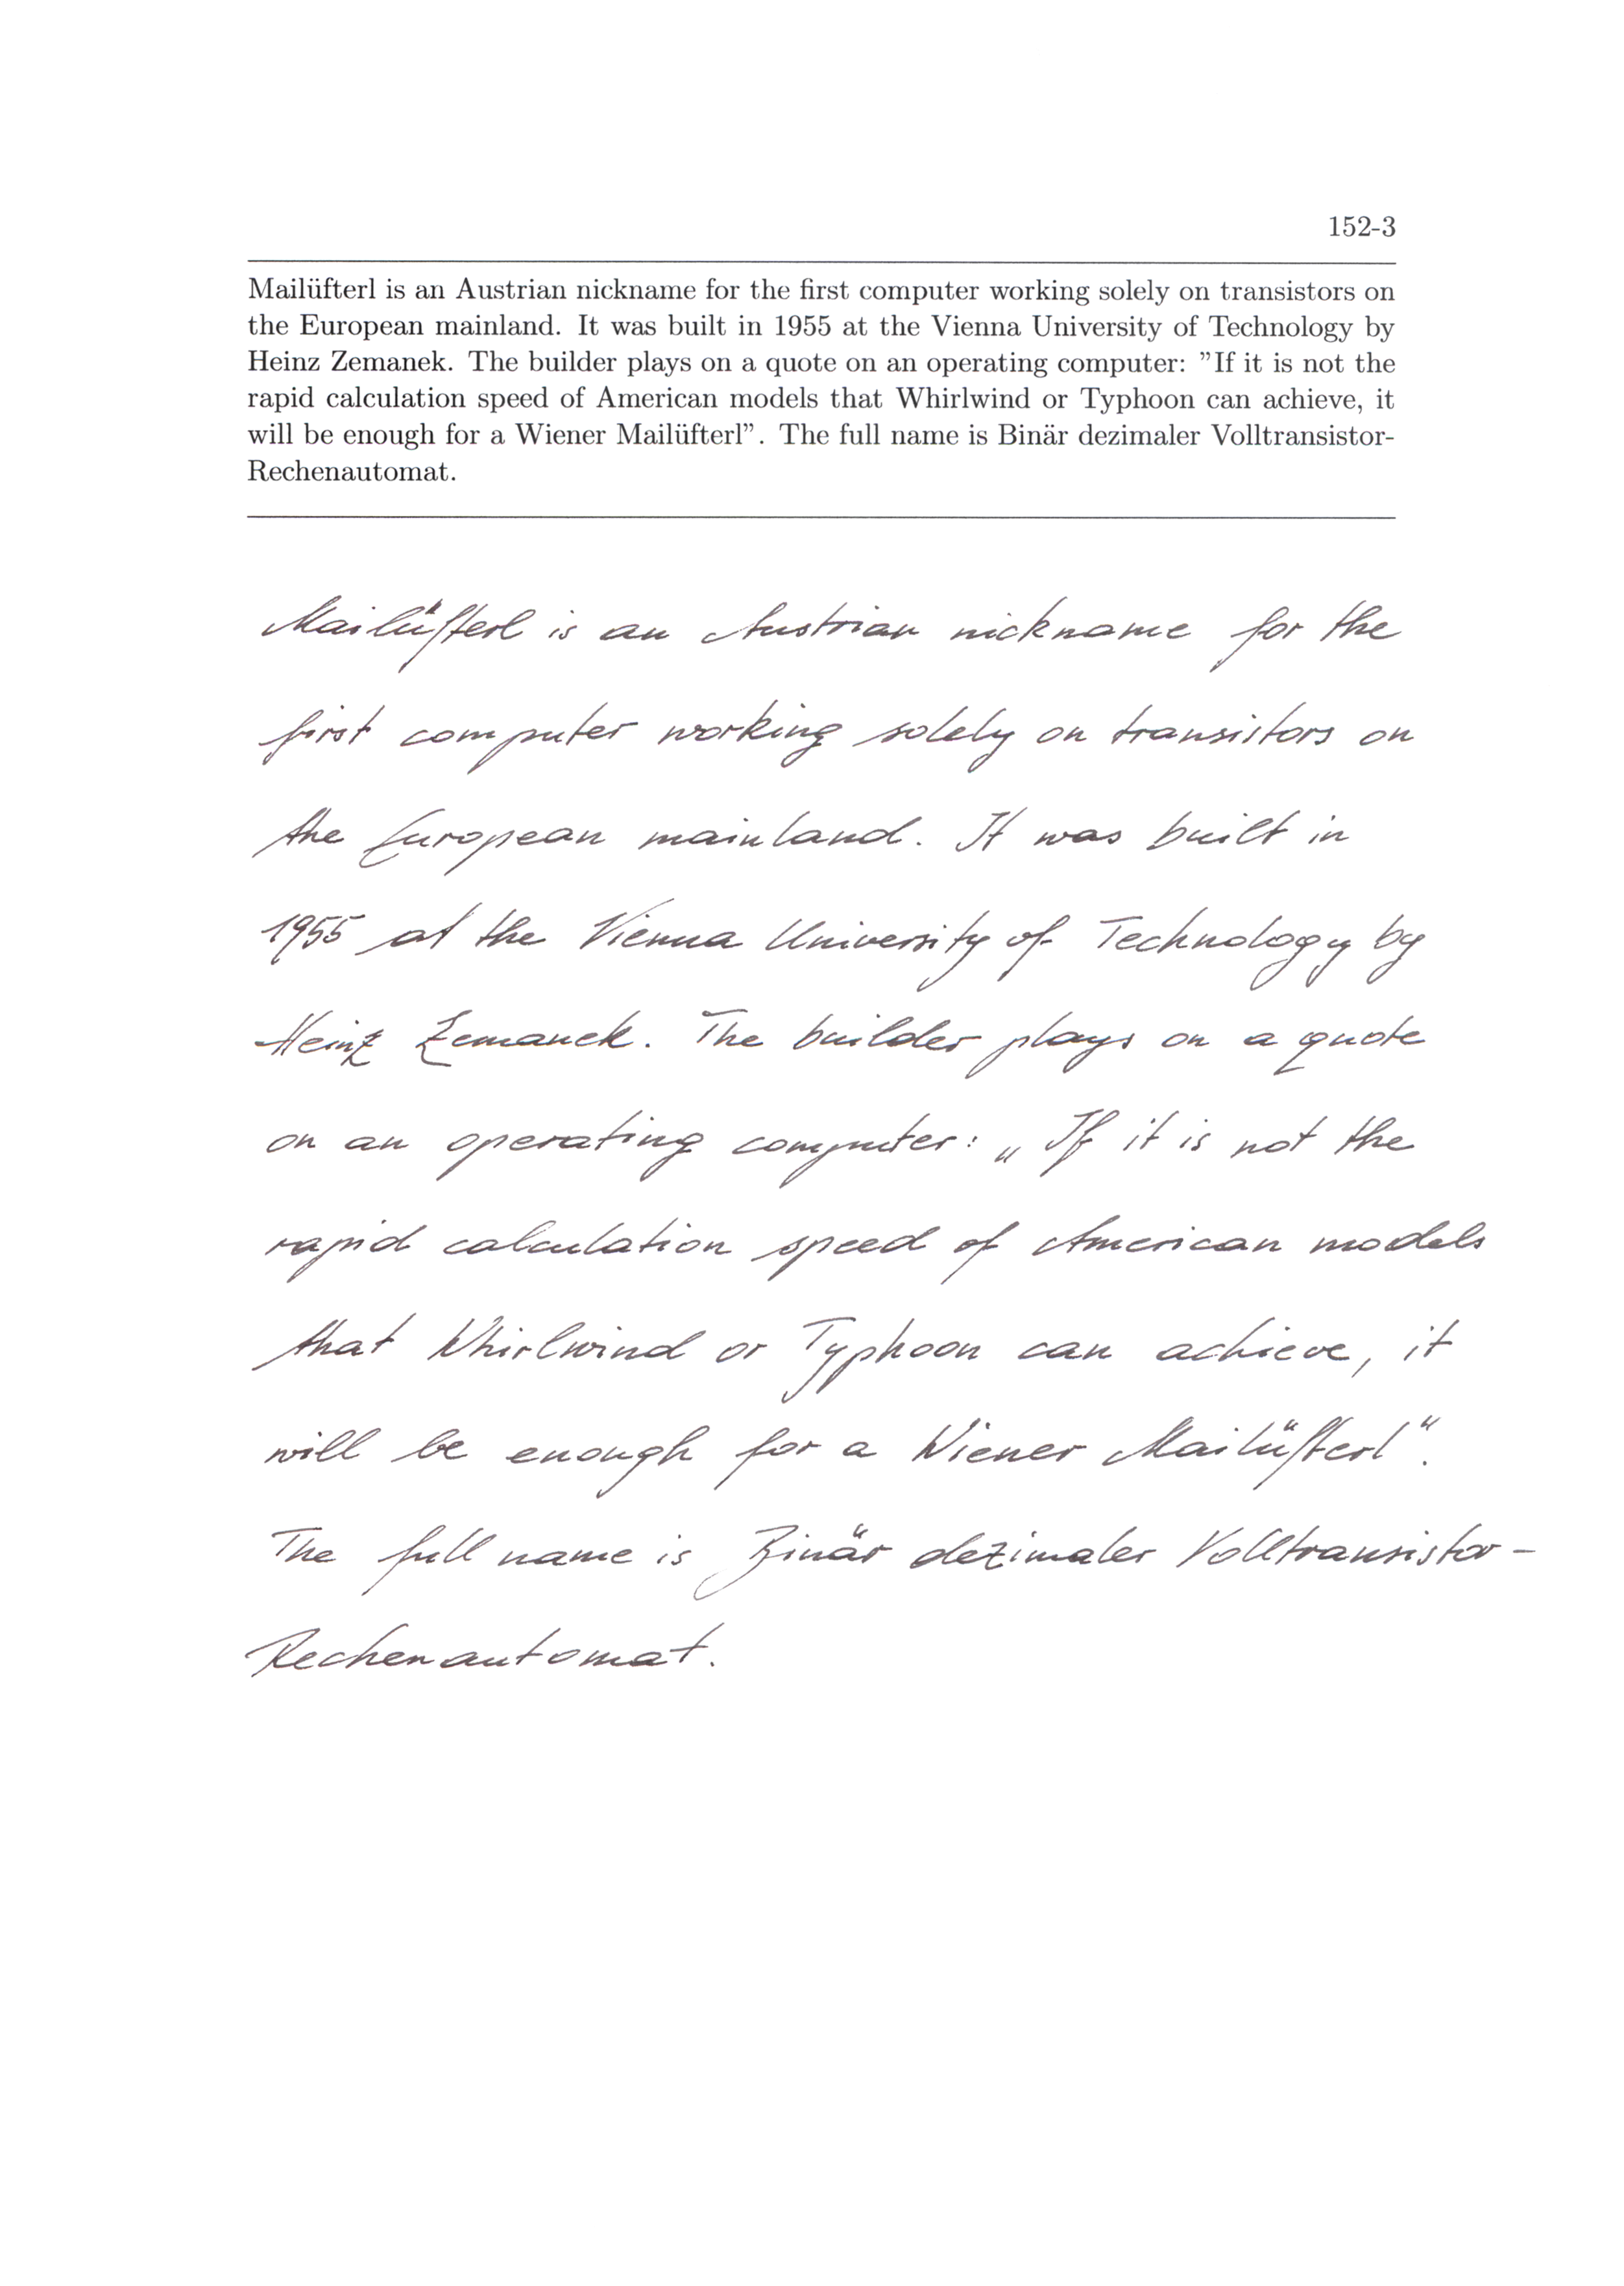 152-3
Mailüfterl is an Austrian nickname for the first computer working solely on transistors on
the European mainland. It was built in 1955 at the Vienna University of Technology by
Heinz Zemanek. The builder plays on a quote on an operating computer: ”If it is not the
rapid calculation speed of American models that Whirlwind or Typhoon can achieve, it
will be enough for a Wiener Mailüfterl”. The full name is Binär dezimaler Volltransistor-
Rechenautomat.
Mailüfterl is an Austrian nickname for the
first computer working solely on transistors on
the European mainland. It was built in
1955 at the Vienna University of Technology by
Heinz Zemanek. The builder plays on a quote
on an operating computer: „If it is not the
rapid calculation speed of American models
that Whirlwind or Typhoon can achieve, it
will be enough for a Wiener Mailüfterl“.
The full name is Binär dezimaler Volltransistor-
Rechenautomat.